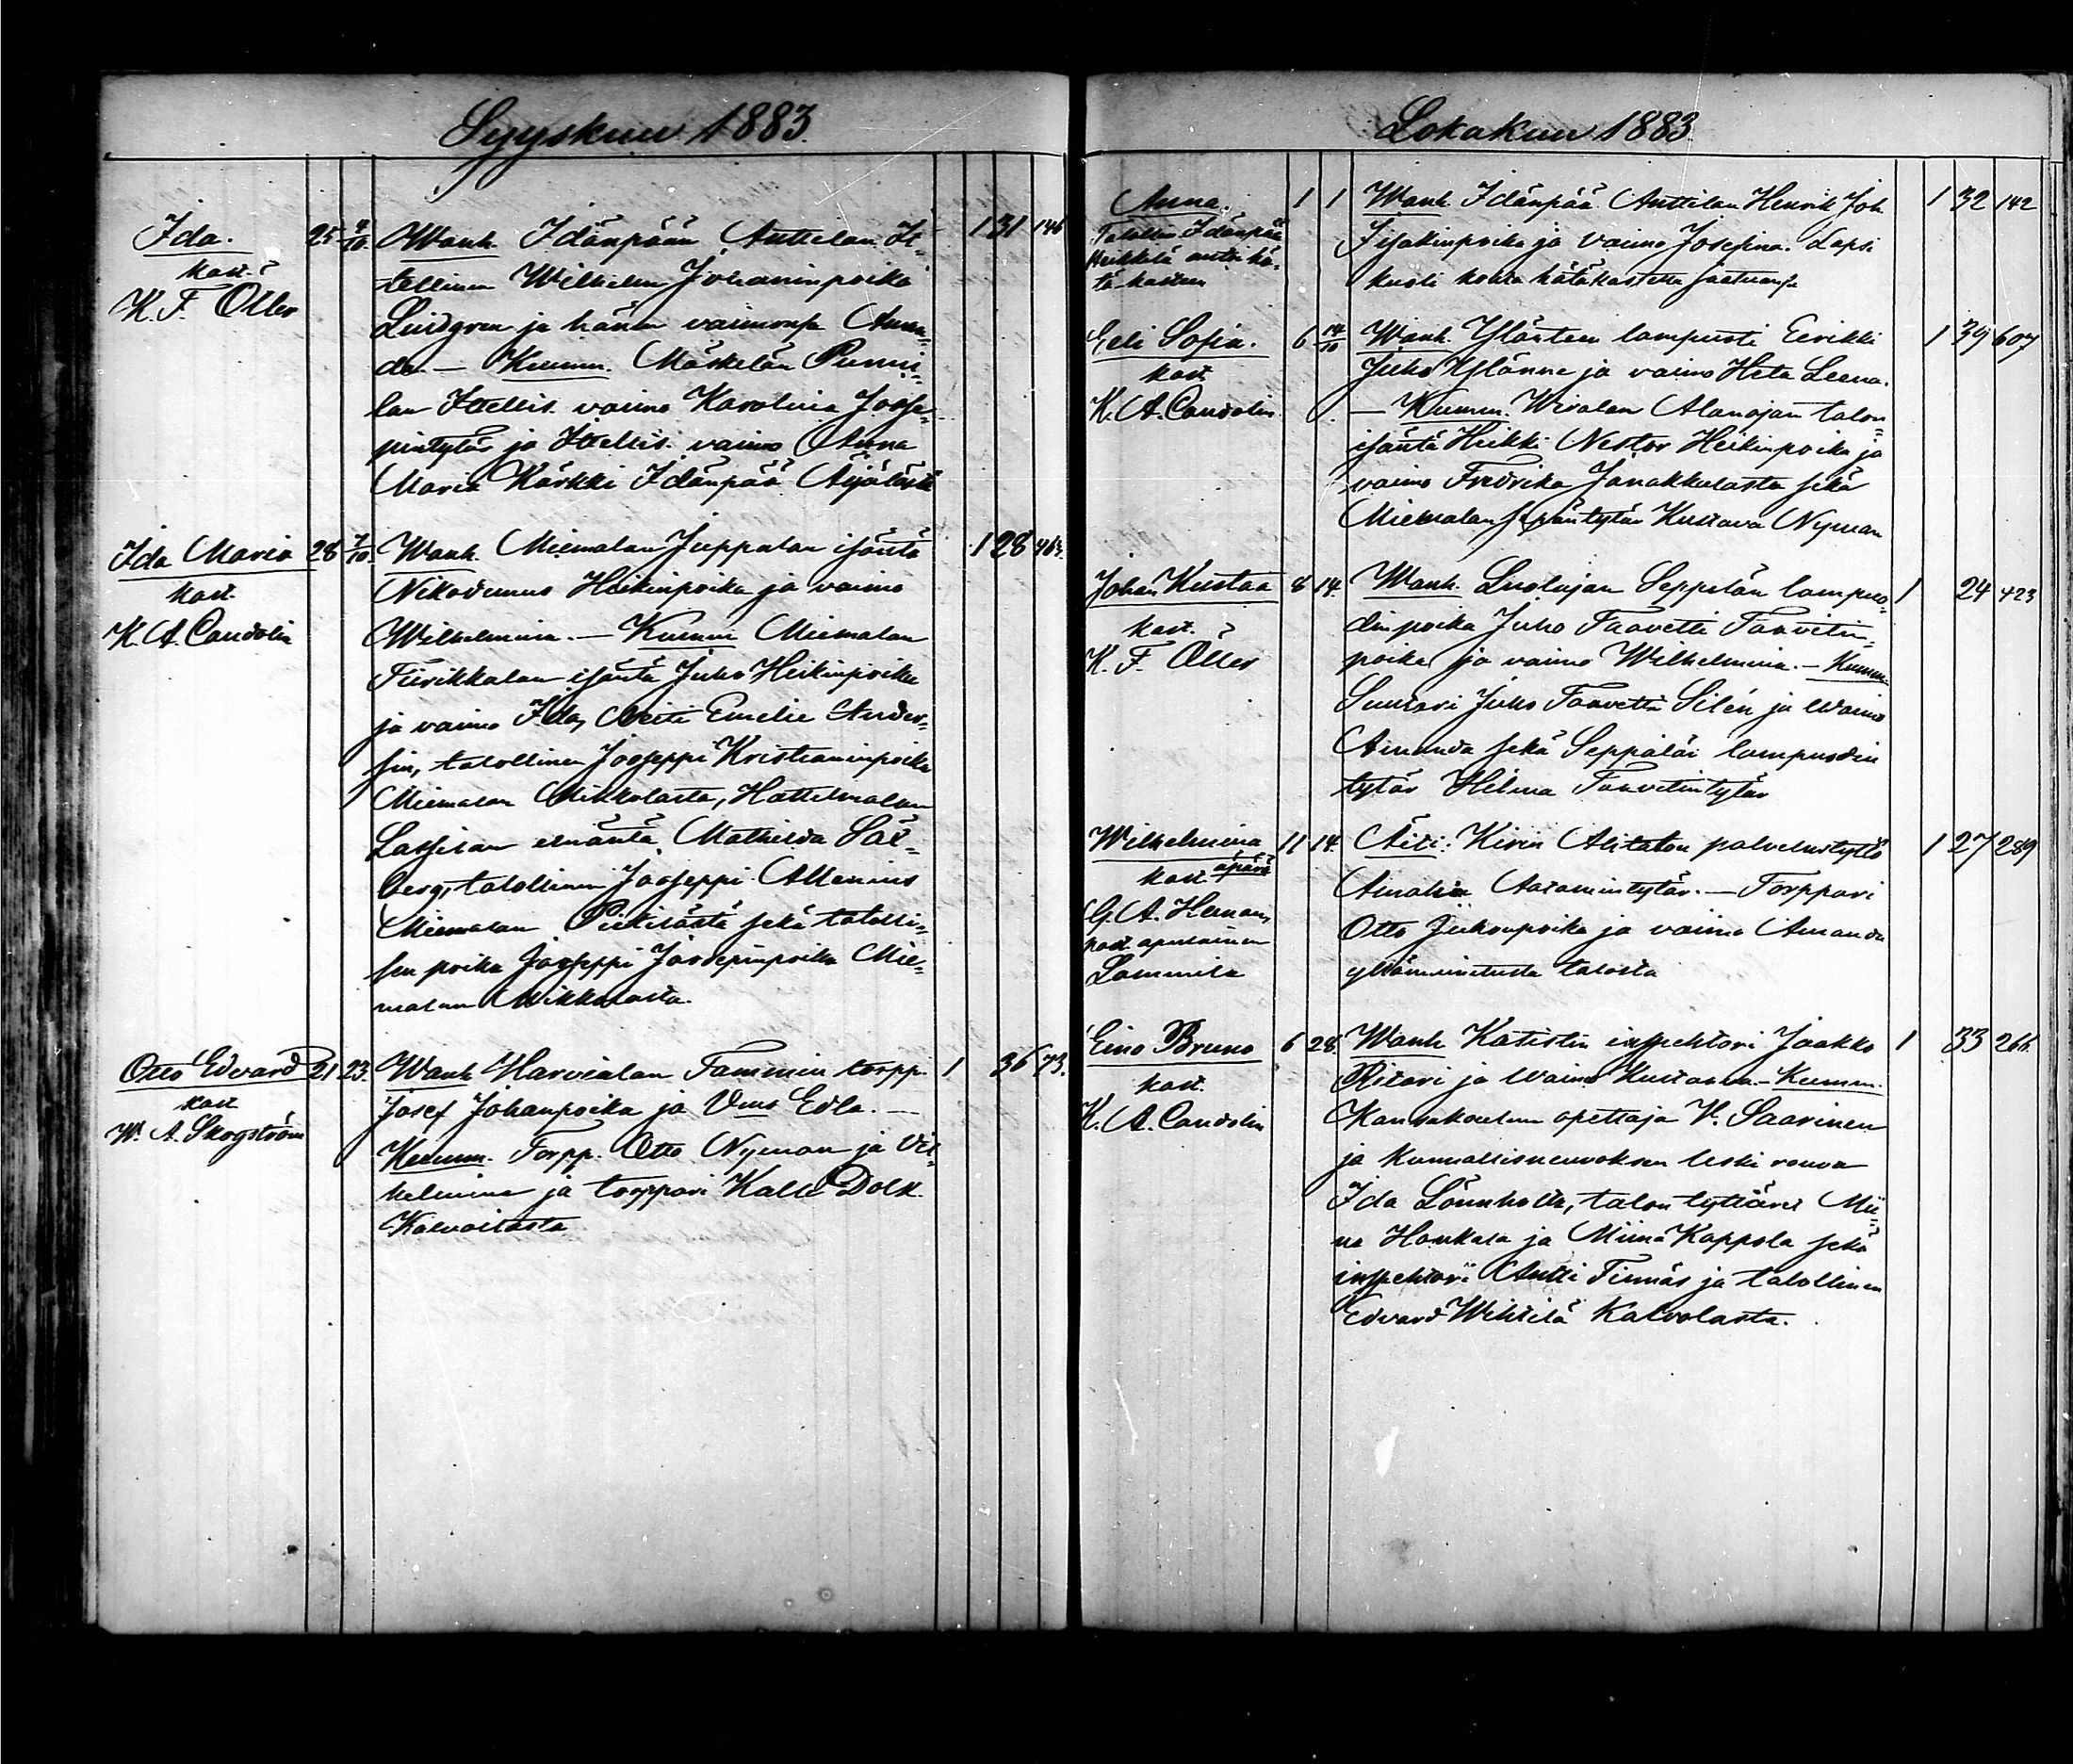 Syyskuu 1883.
Ida.
kast.
K. F. Öller
25 4/10.
Wanh. Idänpään Anttilan It-
tellinen Wilhelm Johaninpoika
Lindgren ja hänen vaimonsa Aman-
da. — Kumm. Mäskelän Punni-
lan Itellis. vaimo Karolina Joose-
pintytär ja Itellis. vaimo Anna
Maria Kärkki Idänpää Äijälästä
1 31 146
Ida Maria
kast.
K. A. Candolin
28 7/10.
Wanh. Miemalan Juppalan isäntä
Nikodemus Heikinpoika ja vaimo
Wilhelmina. — Kumm Miemalan
Fiirikkalan isäntä Juho Heikinpoika
ja vaimo Ida, Neiti Emelie Ander-
sin, talollinen Jooseppi Kristianinpoika
Miemalan Mikkolasta, Hattelmalan
Lassilan emäntä Mathilda Säl-
berg, talollinen Jooseppi Allenius
Miemalan Pirkilästä sekä talolli-
sen poika Jooseppi Joosepinpoika Mie-
malan Mikkolasta.
1 28 463.
Otto Edvard
kast
W. A. Skogström
21 23.
Wanh. Harvialan Tammin torpp.
Josef Johanpoika ja Vmo Edla. —
Kumm. Torpp. Otto Nyman ja Vil-
helmina ja torppari Kalle Dolk.
1 36 73.
Lokakuu 1883.
Anna.
Talollin. Idänpää
Heikkilä antoi hä-
tä-kasteen
1 1
Wanh. Idänpää Anttilan Henrik Joh.
Iisakinpoika ja vaimo Josefina. Lapsi
kuoli kohta hätäkastetta saatuansa
1 32 142
Eeli Sofia.
kast
K. A. Candolin.
6 14/10
Wanh. Ylänteen lampuoti Eerikki
Juho Ylänne ja vaimo Heta Leena.
— Kumm. Wiralan Alanojan talon-
isäntä Heikki Nestor Heikinpoika ja
vaimo Fredrika Janakkalasta sekä
Miemalan sepäntytär Kustava Nyman
1 39 607
Johan Kustaa
kast.
K. F. Öller
8 14.
Wanh. Luolajan Seppälän lampuo-
din poika Juho Taavetti Taavetin-
poika ja vaimo Wilhelmina. — Kumm.
Suutari Juho Taavetti Silén ja Waimo
Amanda sekä Seppälän lampuodin
tytär Hilma Taavetintytär
1 24 423
Wilhelmina
kast. äpärä
G. A. Heman,
past. apulainen
Lammila
11 14.
Äiti: Kirin Alitalon palvelustyttö
Amalia Aatamintytär. — Torppari
Otto Juhonpoika ja vaimo Amanda
yllämainitusta talosta
1 27 289
Eino Bruno
kast.
K. A. Candolin
6 28.
Wanh Katistin inspehtori Jaakko
Ritari ja Waimo Kustaava. — Kumm.
Kansakoulun opettaja V. Saarinen
ja Kunnallisneuvoksen leski rouva
Ida Lönnholtz, talon tyttäret Mii-
na Honkala ja Miina Kappola sekä
inspehtori Antti Finnäs ja talollinen
Edvard Wihtilä Kalvolasta.
1 33 266.